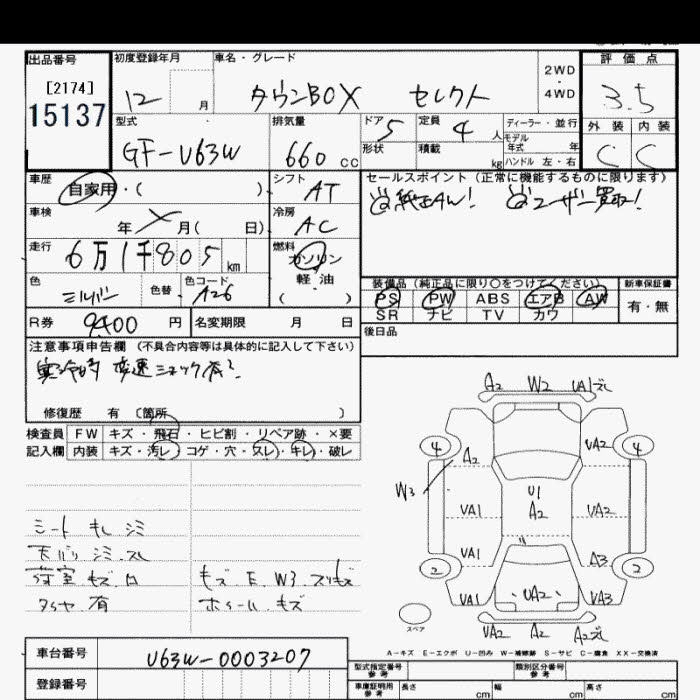 出品番号 初度登録年月 車名・グレード 評価点
[2174] 12 月 タウンBOX セレクト 2WD・4WD 3.5
15137 型式 排気量 ドア 定員 ディーラー・並行 外装 内装
GF-U63W 660 cc 5 4人 モデル年式 年 C C
形状 積載 kg ハンドル 左・右
車歴 自家用・( ) シフト AT セールスポイント(正常に機能するものに限ります)
車検 年 月( 日) 冷房 AC 純正AW! ユーザー買取!
走行 6万1千805km 燃料 ガソリン
軽・油
( )
色 シルバー 色替 色コード A26
装備品(純正品に限り○をつけてください) 新車保証書
PS PW ABS エアB AW 有・無
SR ナビ TV カワ
R券 9400円 名変期限 月 日 後日品
注意事項申告欄(不具合内容等は具体的に記入して下さい)
変速ショック有!
修復歴 有 〔箇所 〕
検査員 FW キズ・飛石・ヒビ割・リペア跡・×要
記入欄 内装 キズ・汚レ・コゲ・穴・スレ・キレ・破レ
シート キレ シミ
天バリ シミ スレ
荷室 キズ 穴 キズ E W3 スリキズ
タイヤ 有 ホイール キズ
A2 W2 UA1ズレ
4 A2 UA2 4
W3 UA1 U1 A2 UA2
UA1 A3
2 2
UA1 UA2 UA3
スペア
UA2 A2 A2ズレ
A-キズ E-エクボ U-凹み W-補修跡 S-サビ C-腐食 XX-交換済
車台番号 U63W-0003207 型式指定番号 参考 類別区分番号 参考
登録番号 車庫証明用 参考 長さ cm 幅 cm 高さ cm